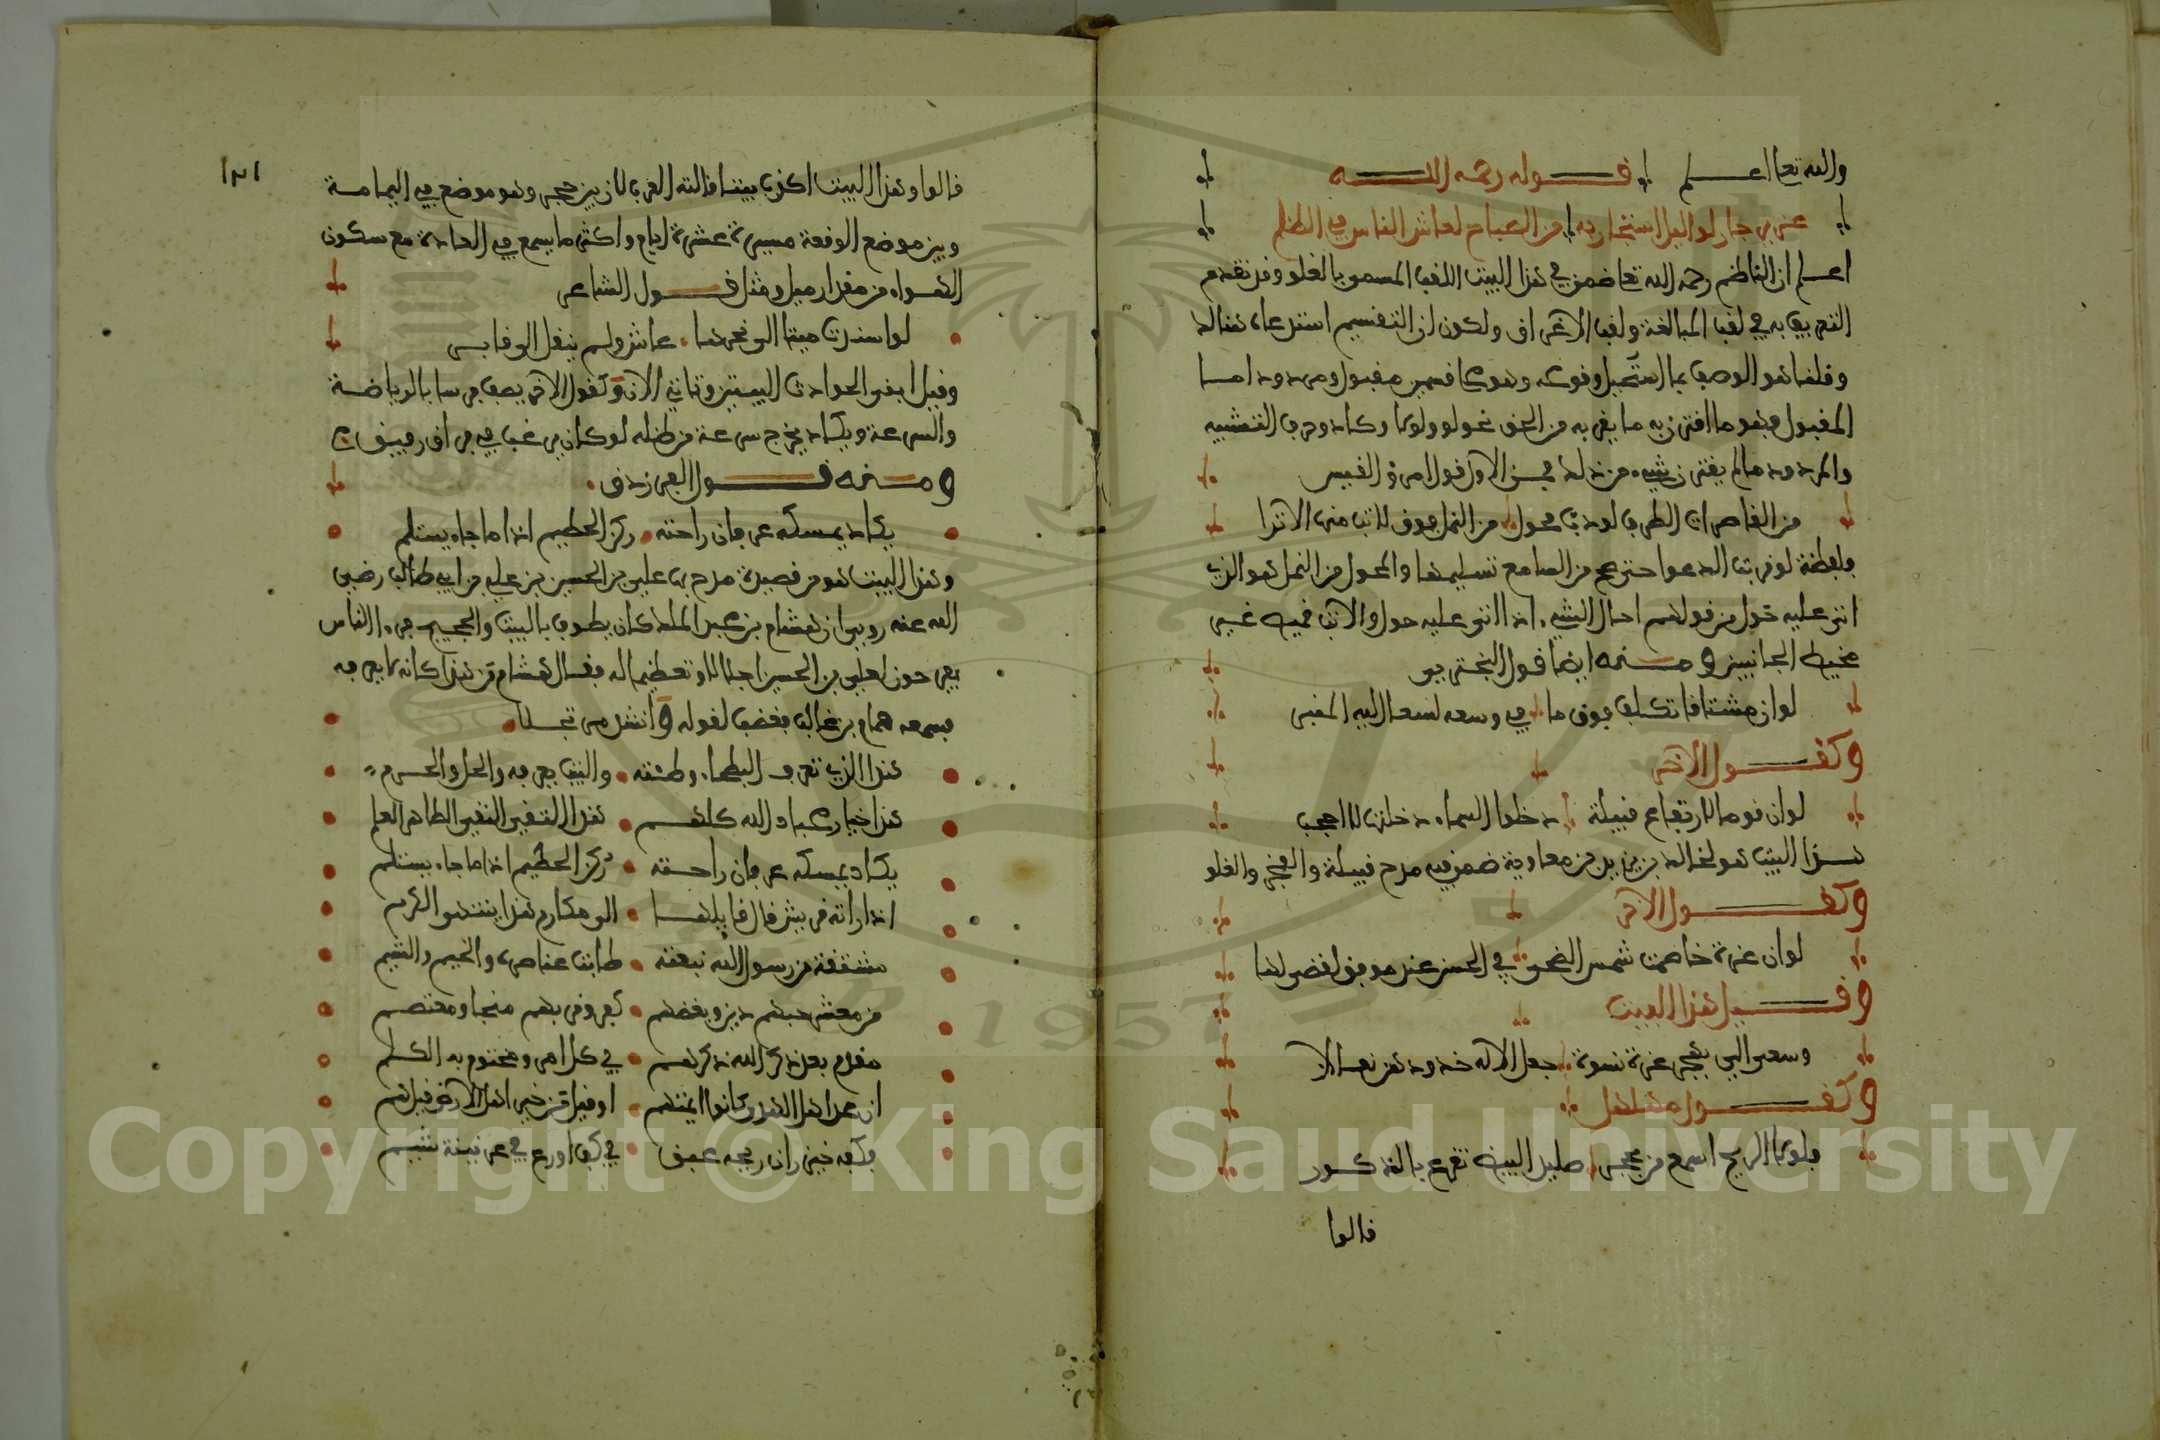 والله تعالى اعلم قوله رحمه الله
عزيز جار لو اليل استجار به من الصباح لعاش الناس في الظلم
اعلم ان الناظم رحمه الله تعا ضمن في هذا البيت اللقب المسمى بالغلو وقد تقدم
التعريف به في لقب المبالغة ولقب الاغراق ولكون ان التقسيم استدعاه هنالك
وقلنا هو الوصف بما يستحيل وقوعه وهو على قسمين مقبول ومردود اما
المقبول فهو ما اقترن به ما يقربه من الحق نحو لو ولولا وكاد وحرف التشبيه
والمردود ما لم يقترن بشيء من ذلك فمن الاول قول امرؤ القيس
من القاصرات الطرف لو دب محول من النمل فوق الاتب منها لاثرا
بلفظة لو قربت الدعوا حتى صح من السامع تسليمها والمحول من النمل هو الذي
اتى عليه حول من قولهم احال الشيء اذا اتى عليه حول والاتب قميص غير
مخيط الجانبين ومنه ايضا قول البختري
لو ان مشتاقا تكلف فوق ما في وسعه لسعا اليه المنبر
وكقول الاخر
لو ان قوما لارتفاع قبيلة دخلوا السماء دخلتها لا احجب
هذا البيت هو لخالد بن يزيد بن معاوية ضمن فيه مدح قبيلة والفخر والغلو
وكقول الاخر
لو ان عزة خاصمت شمس الضحى في الحسن عند موفق لقضى لها
وقبل هذا البيت
وسعى الي بهجر عزة نسوة جعل الاله خدودهن نعالا
وكقول مهلهل
فلولا الريح اسمع من بحجر صليل البيض تقرع بالذكور
قالوا
١٣١
قالوا وهذا البيت اكذب بيت قالته العرب لان بين حجر وهو موضع في اليمامة
وبين موضع الوقعة مسيرة عشرة ايام واكثر ما يسمع في العادة مع سكون
الهواء من مقدار ميل ومثل قول الشاعر
لو اسندت ميتا الى نحرها عاش ولم ينقل الى قابر
والسرعة ويكاد يخرج سرعة من ظله لو كان يرغب في فراق رفيق
ومنه قول الفرزدق
يكاد يمسكه عرفان راحته ركن الحطيم اذا ما جاء يستلم
وهذا البيت هو من قصيدة مدح بها علي بن الحسين بن علي بن ابي طالب رضي
الله عنه روي ان هشام بن عبد الملك كان يطوف بالبيت والحجيج فراا الناس
يفرجون لعلي بن الحسين اجلالا وتعظيما له فقال هشام من هذا كانه لا يعرفه
فسمعه همام بن غالب فغضب لقوله وانشد مرتجلا
هذا الذي تعرف البطحاء وطئته والبيت يعرفه والحل والحرم
هذا خيار عباد الله كلهم هذا التقي النقي الطاهر العلم
يكاد يمسكه عرفان راحته ركن الحطيم اذا ما جاء يستلم
اذا راته قريش قال قايلها الى مكارم هذا ينتهي الكرم
مشتقة من رسول الله نبعته طابت عناصره والخيم والشيم
من معشر حبهم دين وبغضهم كفر وقربهم منجا ومعتصم
مقدم بعد ذكر الله ذكرهم في كل امر ومختوم به الكلم
ان عد اهل الهدى كانوا ايمتهم او قيل من خير اهل الارض قيل هم
بكفه خيزران ريحه عبق في كف اورع في عرنينه شمم
Copyright © King Saud University
1957